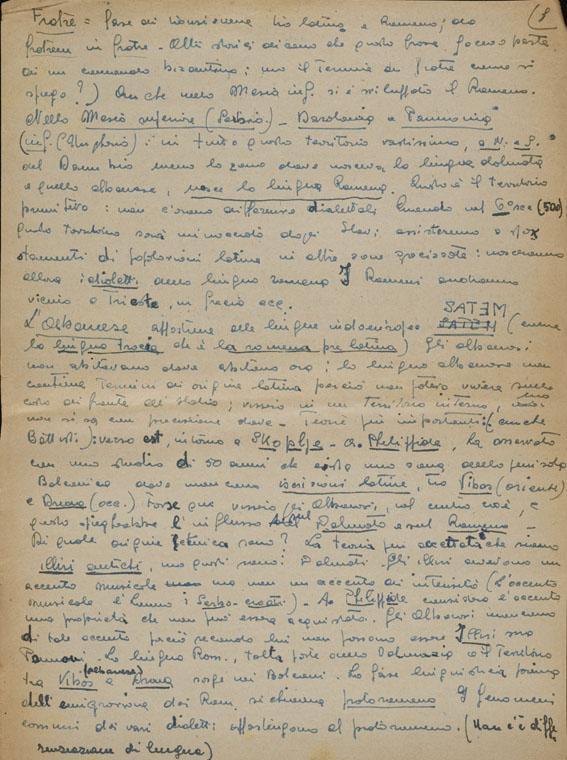 (8
Fratre = fase di transizione tra latino e Rumeno; da
fratrem in fratre. Altri storici dicono che questa frase faceva parte
di un comando bizantino; ma il termine di fratre come si
spiega?) Anche nella Mesia inf. si è sviluppato il Rumeno.
Nella Mesia superiore (Serbia) - Dardania e Pannonia
(inf. (Ungheria): in tutto questo territorio vastissimo, a N. e S.
del Danubio meno la zona dove nasceva la lingua dalmata
e quella albanese, nasce la lingua Rumena. Questo è il territorio
primitivo: non c'erano differenze dialettali. Quando nel (500)
questo territorio sarà minacciato dagli Slavi; assisteremo a spo
stamenti di popolazioni latine in altre zone: nasceranno
allora i dialetti della lingua rumena. I Rumeni andranno
vicino a Trieste, in Grecia ecc.
L'Albanese appartiene alle lingue indoeuropee SATEM (come
la lingua tracia che è la romena pre latina) Gli albanesi
non abitavano dove abitano ora; la lingua albanese non
contiene termini di origine latina perciò non poteva vivere sulla
costa di fronte all'Italia; visse in un territorio interno, ma
non si sa con precisione dove - Teorie più importanti: (anche
Battisti): verso est, intorno a Skoplje - A. Philippide, ha osservato
con uno studio di 50 anni che esiste una zona della penisola
Balcanica dove mancano iscrizioni latine, tra Vibos (oriente)
e Drava (occ.) Forse qui vissero gli Albanesi, nel centro, cioè, e
questo spiegherebbe l'influsso sul Dalmata e sul Rumeno -
Di quale origine etnica sono? La teoria più accettata è che siano
illiri antichi, ma questi sono i Dalmati. Gli illiri avevano un
accento musicale ma non un accento di intensità (L'accento
musicale l'hanno i Serbo-croati) - A. Philippide considera l'accento
una proprietà che non può essere acquistata. Gli Albanesi mancano
di tale accento perciò secondo lui non possono essere Illiri ma
Pannoni. La lingua Rom., tolta parte della Dalmazia e il territorio
tra Vibos e Drava sorge nei Balcani. La fase linguistica prima
dell'emigrazione dei Rum. si chiama protorumeno. I fenomeni
comuni dei vari dialetti appartengono al protorumeno. (Non c'è diffe
renziazione di lingua)